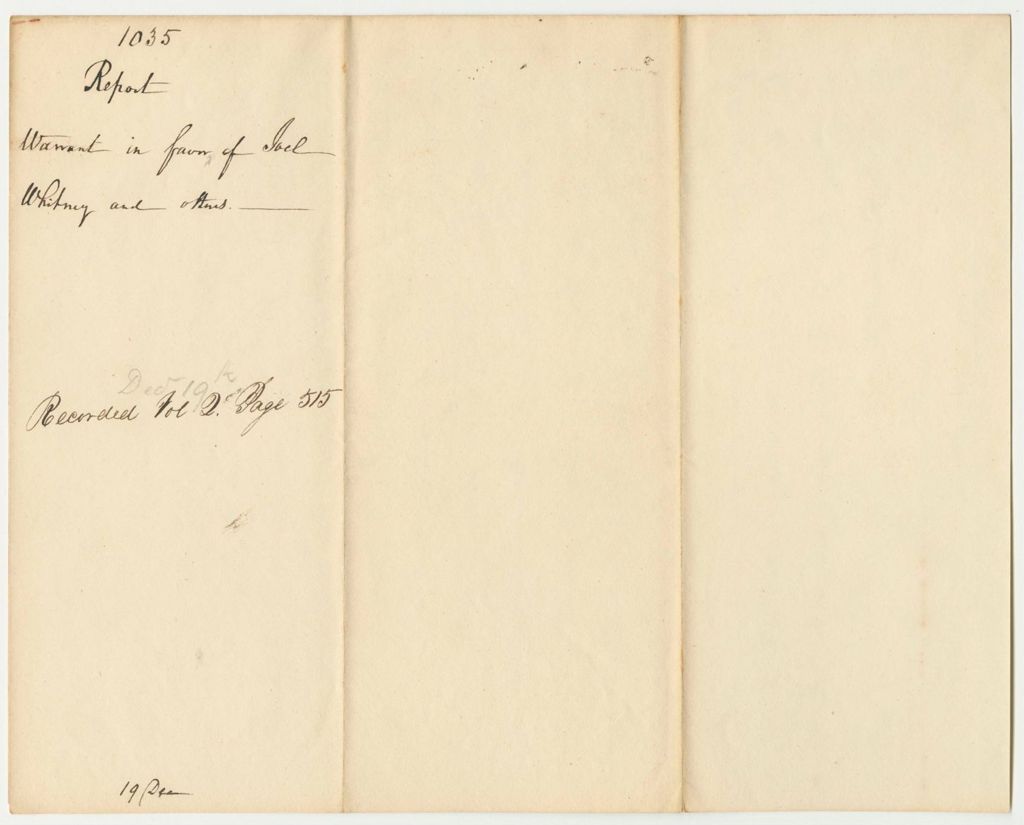 1035
Report
Warrant in favor of Joel
Whitney and others.
Dec 19
Recorded Vol 2. Page 515
19 Dec